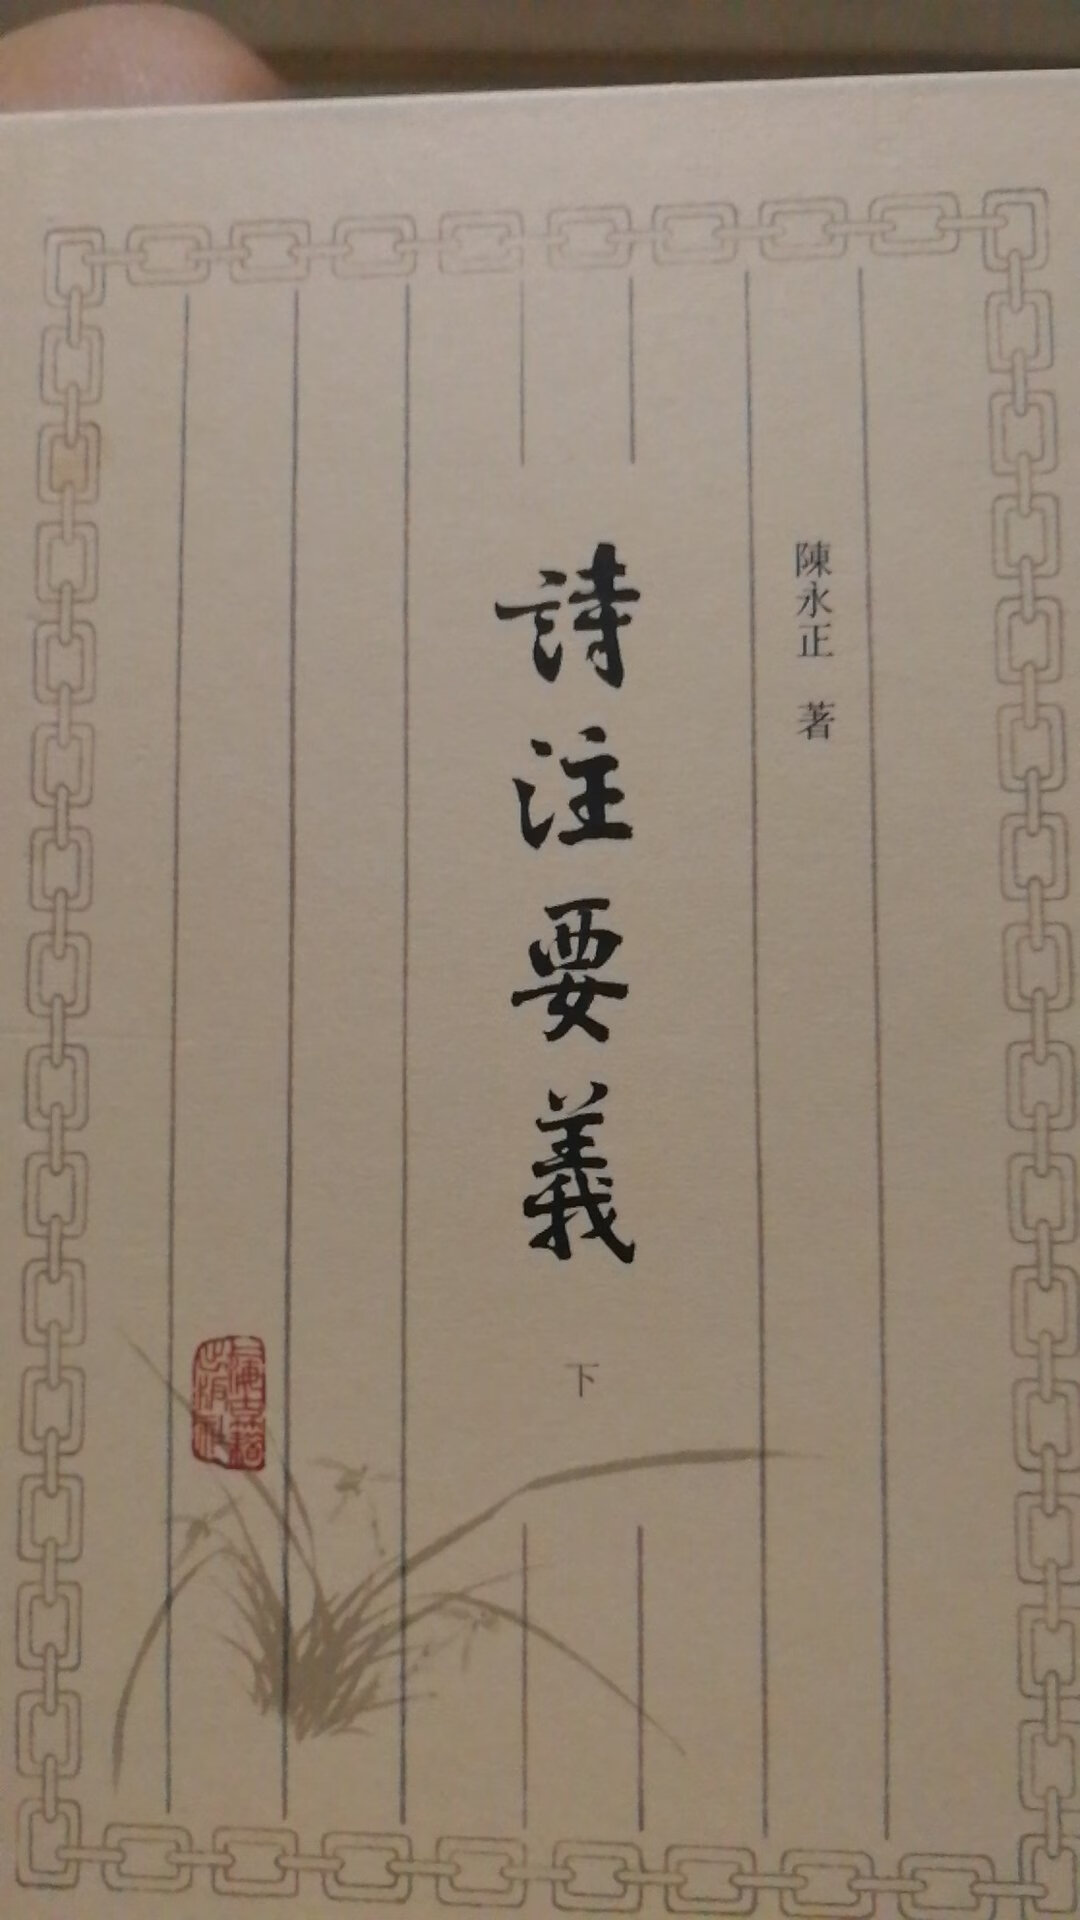 陳永正 著
詩注要義
下
上海古籍
出版社